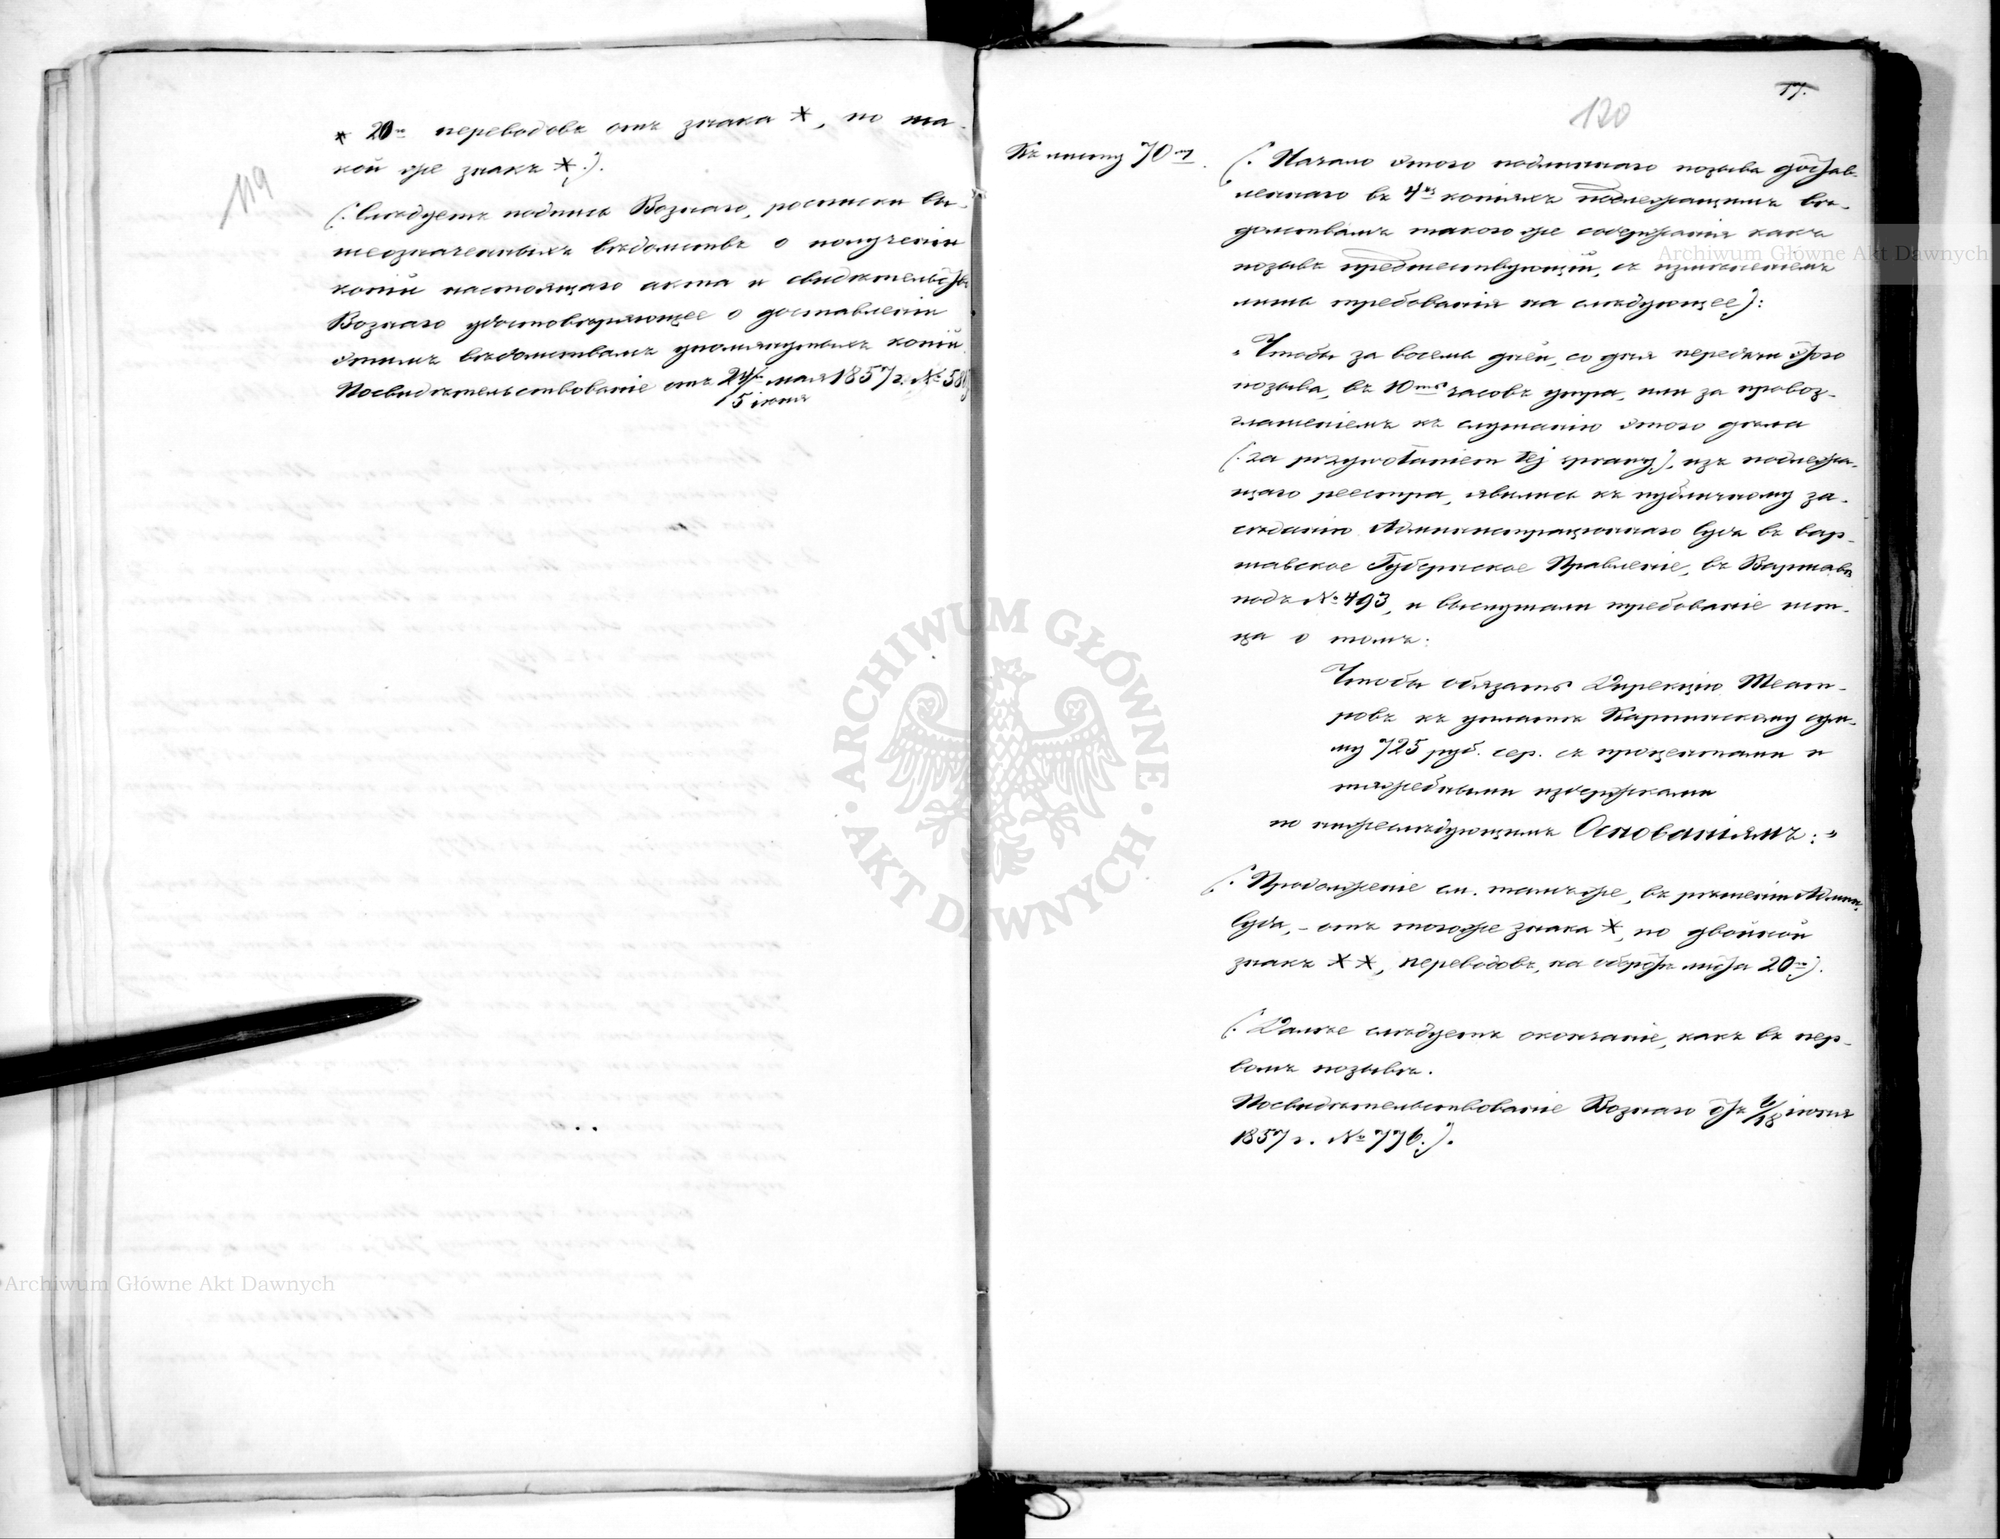 119
* 20го переводовъ отъ знака *, по та-
кой же знакъ *.).
(. Слѣдуетъ подпись Вознаго, росписки вы-
шеозначенныхъ вѣдомствъ о полученіи
копій настоящаго акта и свидѣтельство
Вознаго удостовѣряющее о доставленіи
этимъ вѣдомствамъ упомянутыхъ копій.
Посвидѣтельствованіе отъ 24/5 мая/іюня 1857 г. №
17.
120
Къ листу 70му.
(. Начало этого подлиннаго позыва достав-
леннаго въ 4хъ копіяхъ подлежащимъ вѣ-
домствамъ такого же содержанія какъ
позывъ предшествующій, съ измѣненіемъ
лишь требованія на слѣдующее):
„Чтобы за восемь дней, со дня передачи этого
позыва, въ 10ть часовъ утра, или за провоз-
глашеніемъ къ слушанію этого дѣла
(. za przywołaniem tej sprawy), изъ подлежа-
щаго реестра, явились къ публичному за-
сѣданію Администраціоннаго Суда въ Вар-
шавское Губернское Правленіе, въ Варшавѣ
подъ № 493, и выслушали требованіе ист-
ца о томъ:
Чтобы обязать Дирекцію Теат-
ровъ къ уплатѣ Карпинскому сум-
му 725 руб. сер. съ процентами и
тяжебными издержками
по нижеслѣдующимъ Основаніямъ:„
(. Продолженіе см. тамъ же, въ рѣшеніи Админ.
Суда, – отъ того же знака *, по двойной
знакъ * *, переводовъ, на оборотѣ листа 20го).
(. Далѣе слѣдуетъ окончаніе, какъ въ пер-
вомъ позывѣ.
Посвидѣтельствованіе Вознаго отъ 6/18 іюня
1857 г. № 776.).
Archiwum Główne Akt Dawnych
ARCHIWUM GŁÓWNE · AKT DAWNYCH ·
Archiwum Główne Akt Dawnych